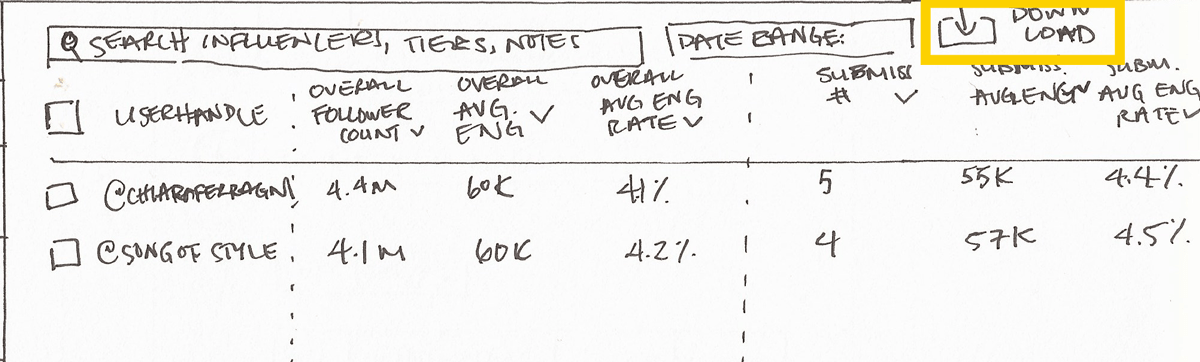 SEARCH INFLUENCERS, TIERS, NOTES
DATE RANGE:
DOWN
LOAD
USERHANDLE
OVERALL
FOLLOWER
COUNT
OVERALL
AVG.
ENG
OVERALL
AVG ENG
RATE
SUBMISS
#
SUBMISS.
AVG ENG
SUBM.
AVG ENG
RATE
@CHIARAFERRAGNI 4.4M 60K 4.1% 5 55K 4.4%
@SONGOFSTYLE 4.1M 60K 4.2% 4 57K 4.5%